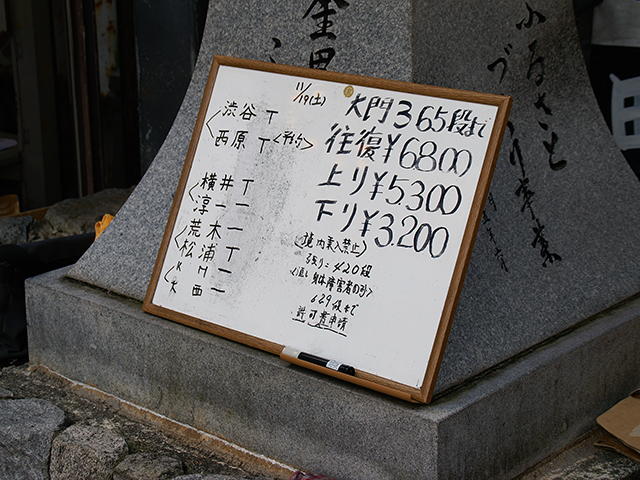 11/19(土)
大門365段まで
往復¥6800
上り¥5,300
下り¥3,200
<境内乗入禁止>
420段
身体障害者のみ>
629段まで
許可要申請
渋谷 T
西原 T <予約>
横井 T
淳一 一
荒木 一
松浦 T
K M 一
K 西 一
ふるさと
づくり事業